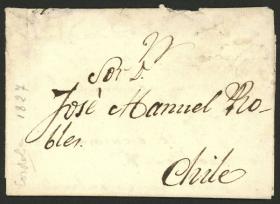 Sor D.
Josè Manuel Ro-
bles.
Chile
1827